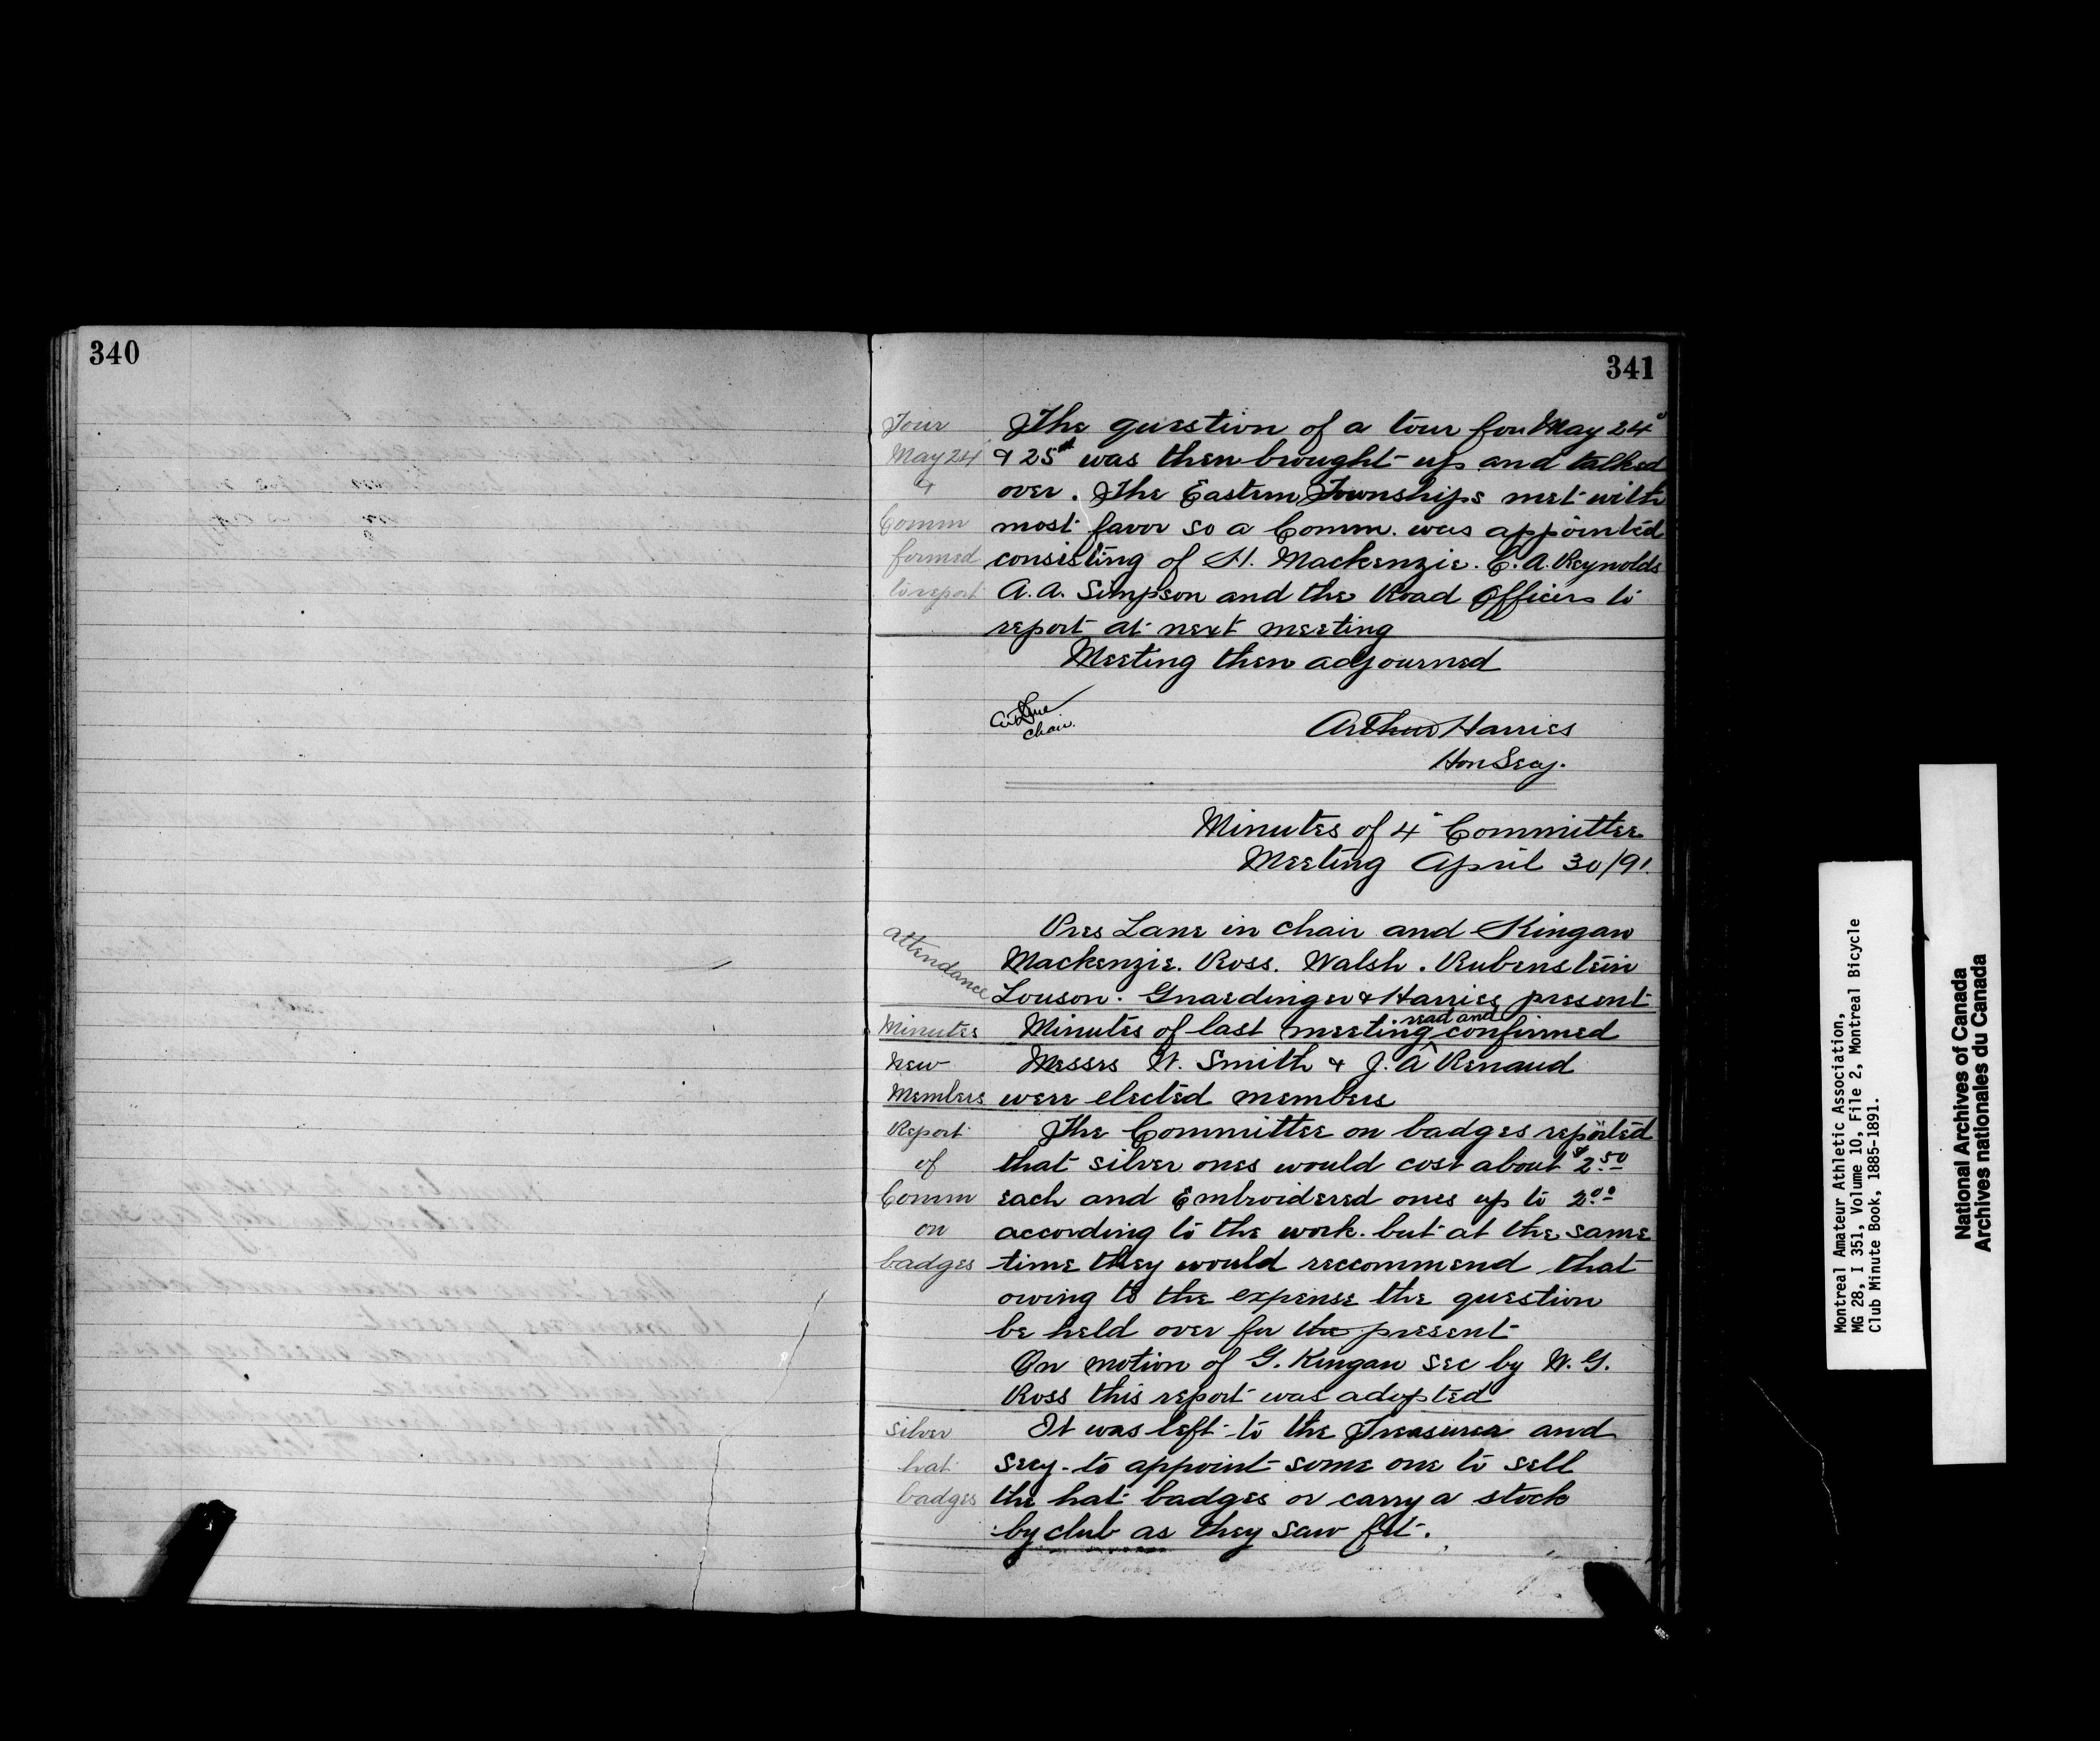 340
341
Tour
May 24
&
Comm
formed
to report
The question of a tour for May 24"
& 25th was then brought up and talked
over. The Eastern Townships met with
most favor so a Comm. was appointed
consisting of H. Mackenzie. C. A. Reynolds
A. A. Simpson and the Road Officers to
report at next meeting
Meeting then adjourned
chair.
Arthur Harries
Hon Secy.
Minutes of 4" Committee
Meeting April 30/91.
attendance
Pres Lane in chair and Kingan
Mackenzie. Ross. Walsh. Rubenstein
Louson. Gnaedinger & Harries present
Minutes
Minutes of last meeting read and confirmed
New
Members
Messrs W. Smith & J. A Renaud
were elected members
Report
of
Comm
on
badges
The Committee on badges reported
that silver ones would cost about $2.50
each and Embroidered ones up to 2.00
according to the work. but at the same
time they would reccommend that
owing to the expense the question
be held over for the present
On motion of G. Kingan sec by W. G.
Ross this report was adopted
Silver
hat
badges
It was left to the Treasurer and
Secy. to appoint some one to sell
the hat badges or carry a stock
by club as they saw fit.
Montreal Amateur Athletic Association,
MG 28, I 351, Volume 10, File 2, Montreal Bicycle
Club Minute Book, 1885-1891.
National Archives of Canada
Archives nationales du Canada